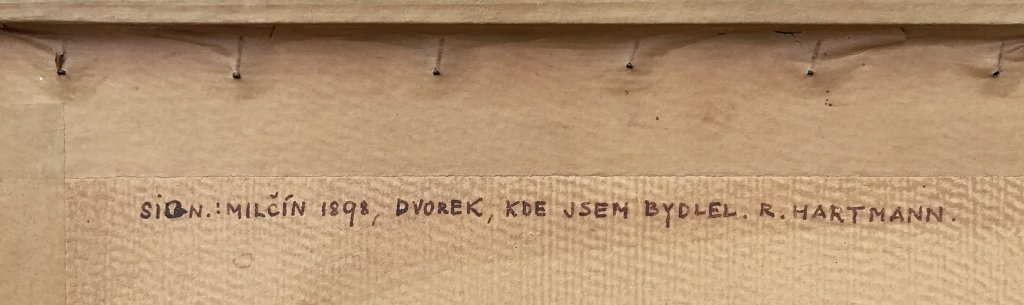 SIGN.: MILČÍN 1898, DVOREK, KDE JSEM BYDLEL. R. HARTMANN.